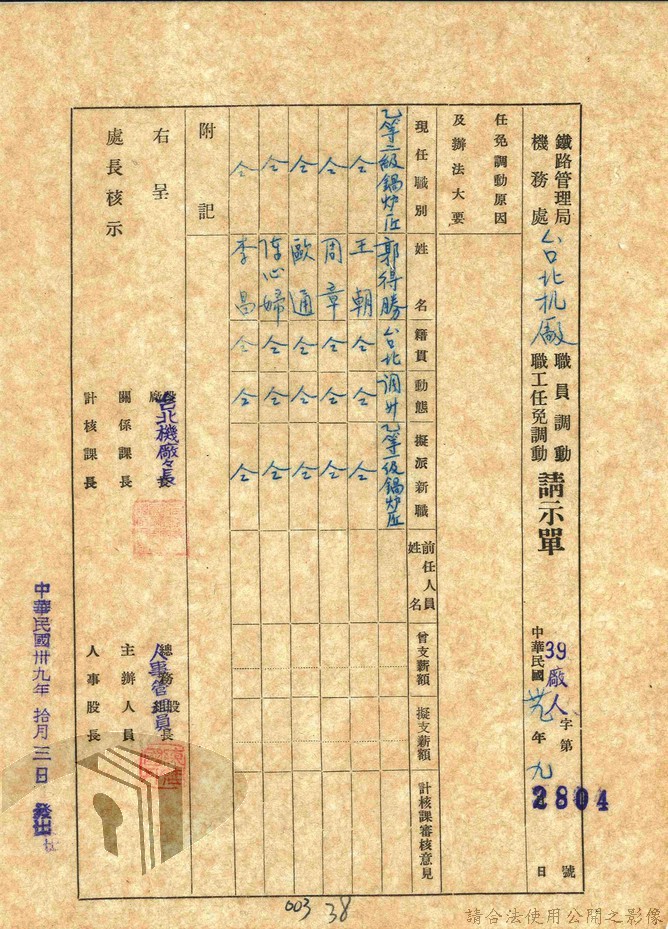 鐵路管理局
機務處
台北机廠
職員調動
職工任免調動
請示單
39廠人字第2804號
中華民國卅九年九 日
任免調動原因
及辦法大要
現任職別
姓名
籍貫
動態
擬派新職
前任人員姓名
曾支薪額
擬支薪額
計核課審核意見
乙等二級鍋炉匠 郭得勝 台北 調升 乙等一級鍋炉匠
仝 王朝 仝 仝 仝
仝 周章 仝 仝 仝
仝 歐通 仝 仝 仝
仝 陳心婦 仝 仝 仝
仝 李昌 仝 仝 仝
附記
右呈
處長核示
台北機廠々長
人事管理員
關係課長
主辦人員
計核課長
人事股長
中華民國卅九年拾月三日 發出
003 38
請合法使用公開之影像